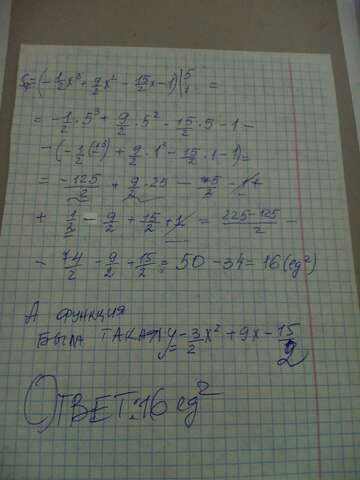 S_ф=(-1/2 x³+9/2 x²-15/2 x-1)|₁⁵ =
= -1/2·5³+9/2·5²-15/2·5-1-
-(-1/2·(1³)+9/2·1²-15/2·1-1)=
= -125/2+9/2·25-75/2-1+
+ 1/2-9/2+15/2+1 = 225-125/2 -
- 74/2-9/2+15/2 = 50-34=16(ед²)
А функция
была такая y=-3/2x²+9x-15/2
Ответ:16 ед²